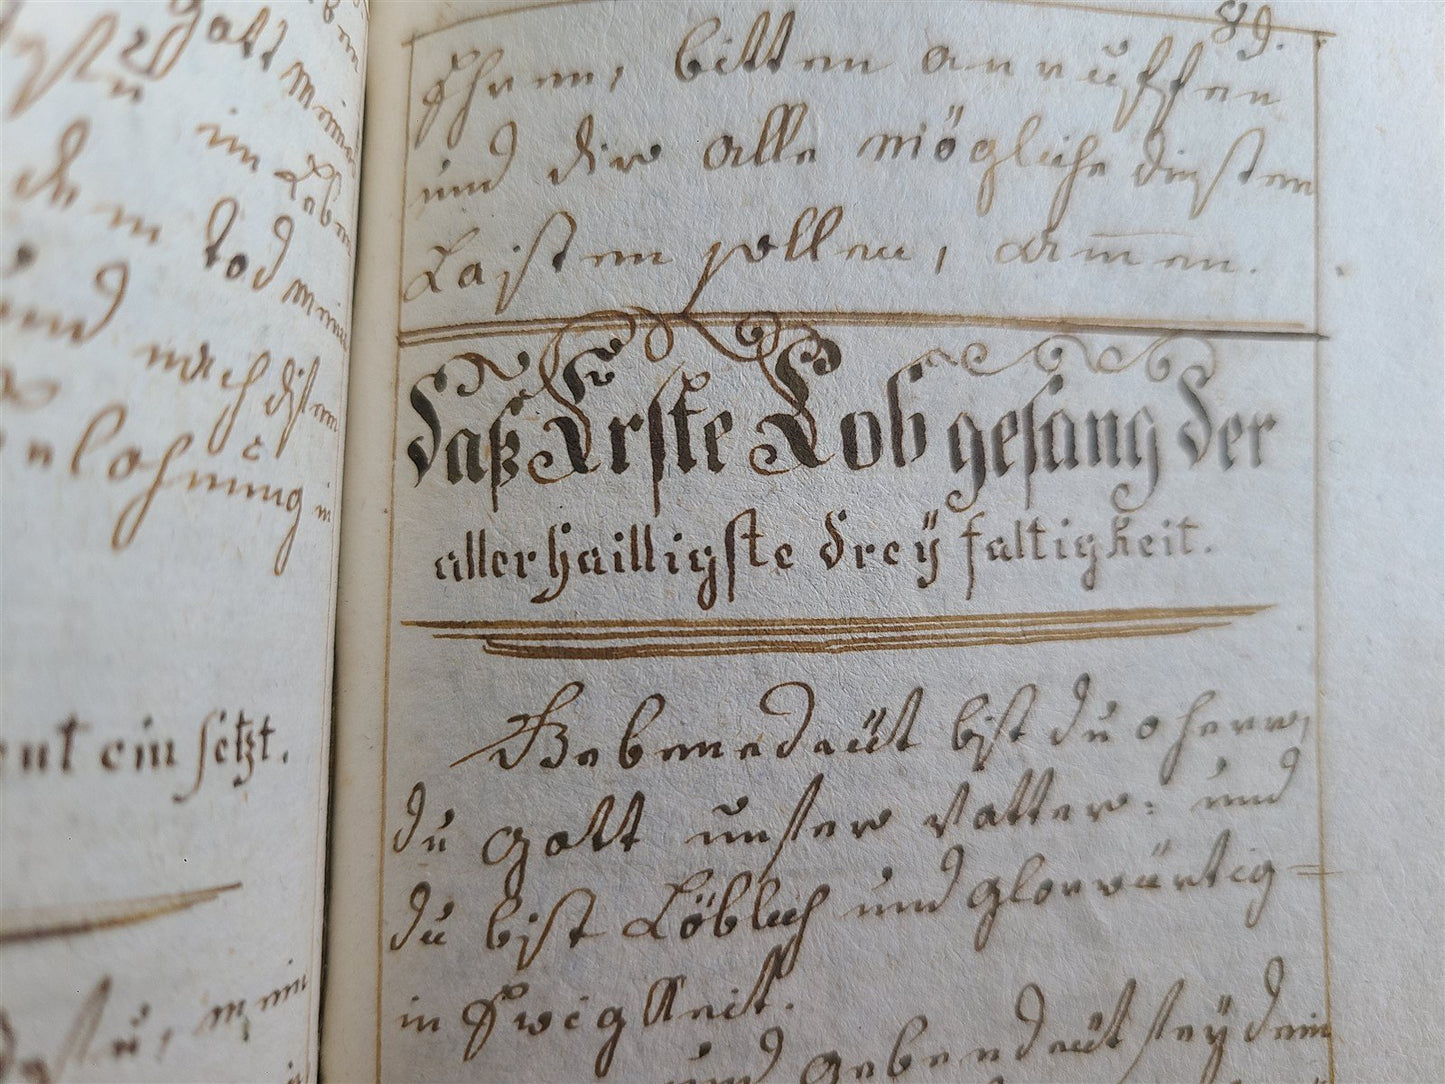 Gott mein
im Leben
dem tod mein
und nach disem
belohnung in
ent ein setzt.
89.
Ehren, bitten anruffen
und dir alle mögliche dinsten
Laisten sollen, Amen.
daß Erste Lob gesang der
aller hailligste drey faltigkeit.
Gebenedeüt bist du o herr,
du Gott unser Vatter: und
du bist Löblich und glorwürtig
in Ewigkeit.
und gebenedeüt sey dein